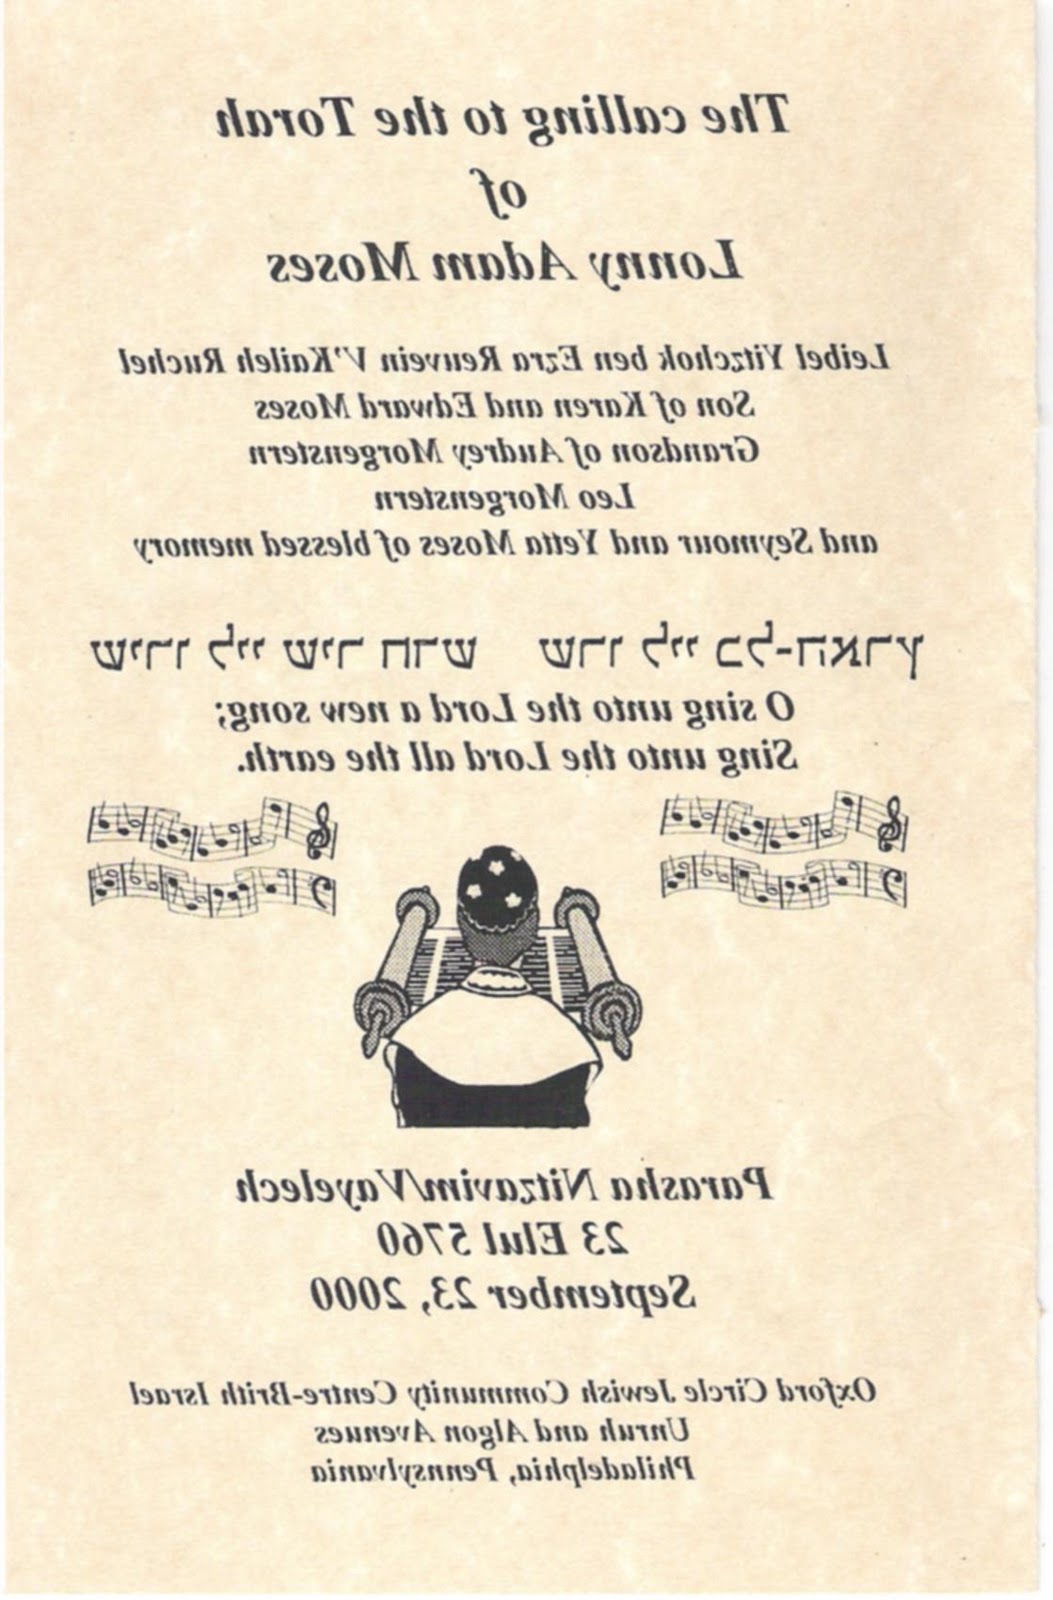 The calling to the Torah
of
Lonny Adam Moses
Leibel Yitzchok ben Ezra Reuvein V'Kaileh Ruchel
Son of Karen and Edward Moses
Grandson of Audrey Morgenstern
Leo Morgenstern
and Seymour and Yetta Moses of blessed memory
שירו ליי שיר חדש שרו ליי כל-הארץ
O sing unto the Lord a new song;
Sing unto the Lord all the earth.
Parasha Nitzavim/Vayelech
23 Elul 5760
September 23, 2000
Oxford Circle Jewish Community Centre-Brith Israel
Unruh and Algon Avenues
Philadelphia, Pennsylvania